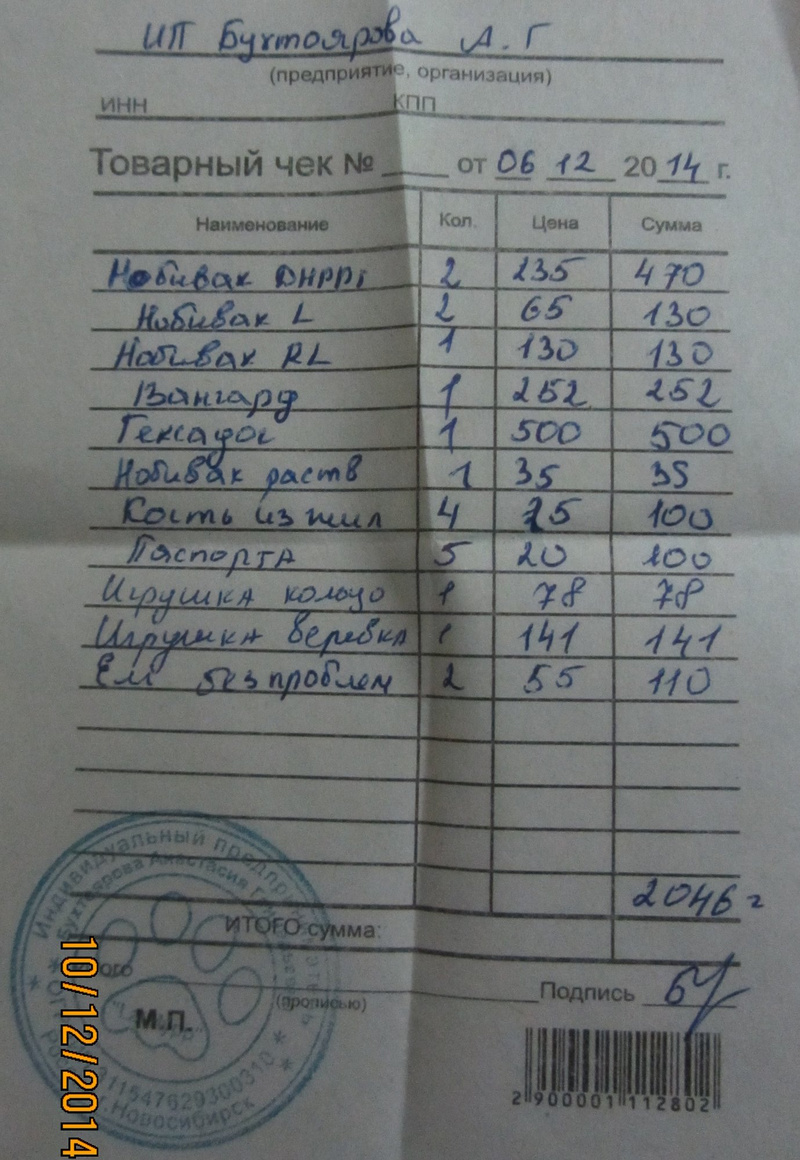 ИП Бухтоярова А. Г
(предприятие, организация)
ИНН КПП
Товарный чек № от 06 12 2014 г.
Наименование Кол. Цена Сумма
Нобивак DHPPi 2 235 470
Нобивак L 2 65 130
Нобивак RL 1 130 130
Вангард 1 252 252
Гексадог 1 500 500
Нобивак раств 1 35 35
Кость из жил 4 25 100
Паспорта 5 20 100
Игрушка кольцо 1 78 78
Игрушка веревка 1 141 141
Ем без проблем 2 55 110
2046
ИТОГО сумма:
Подпись
(прописью)
М.П.
Индивидуальный предприниматель
Бухтоярова Анастасия
11547629300310
г.Новосибирск
2 900001 112802
10/12/2014